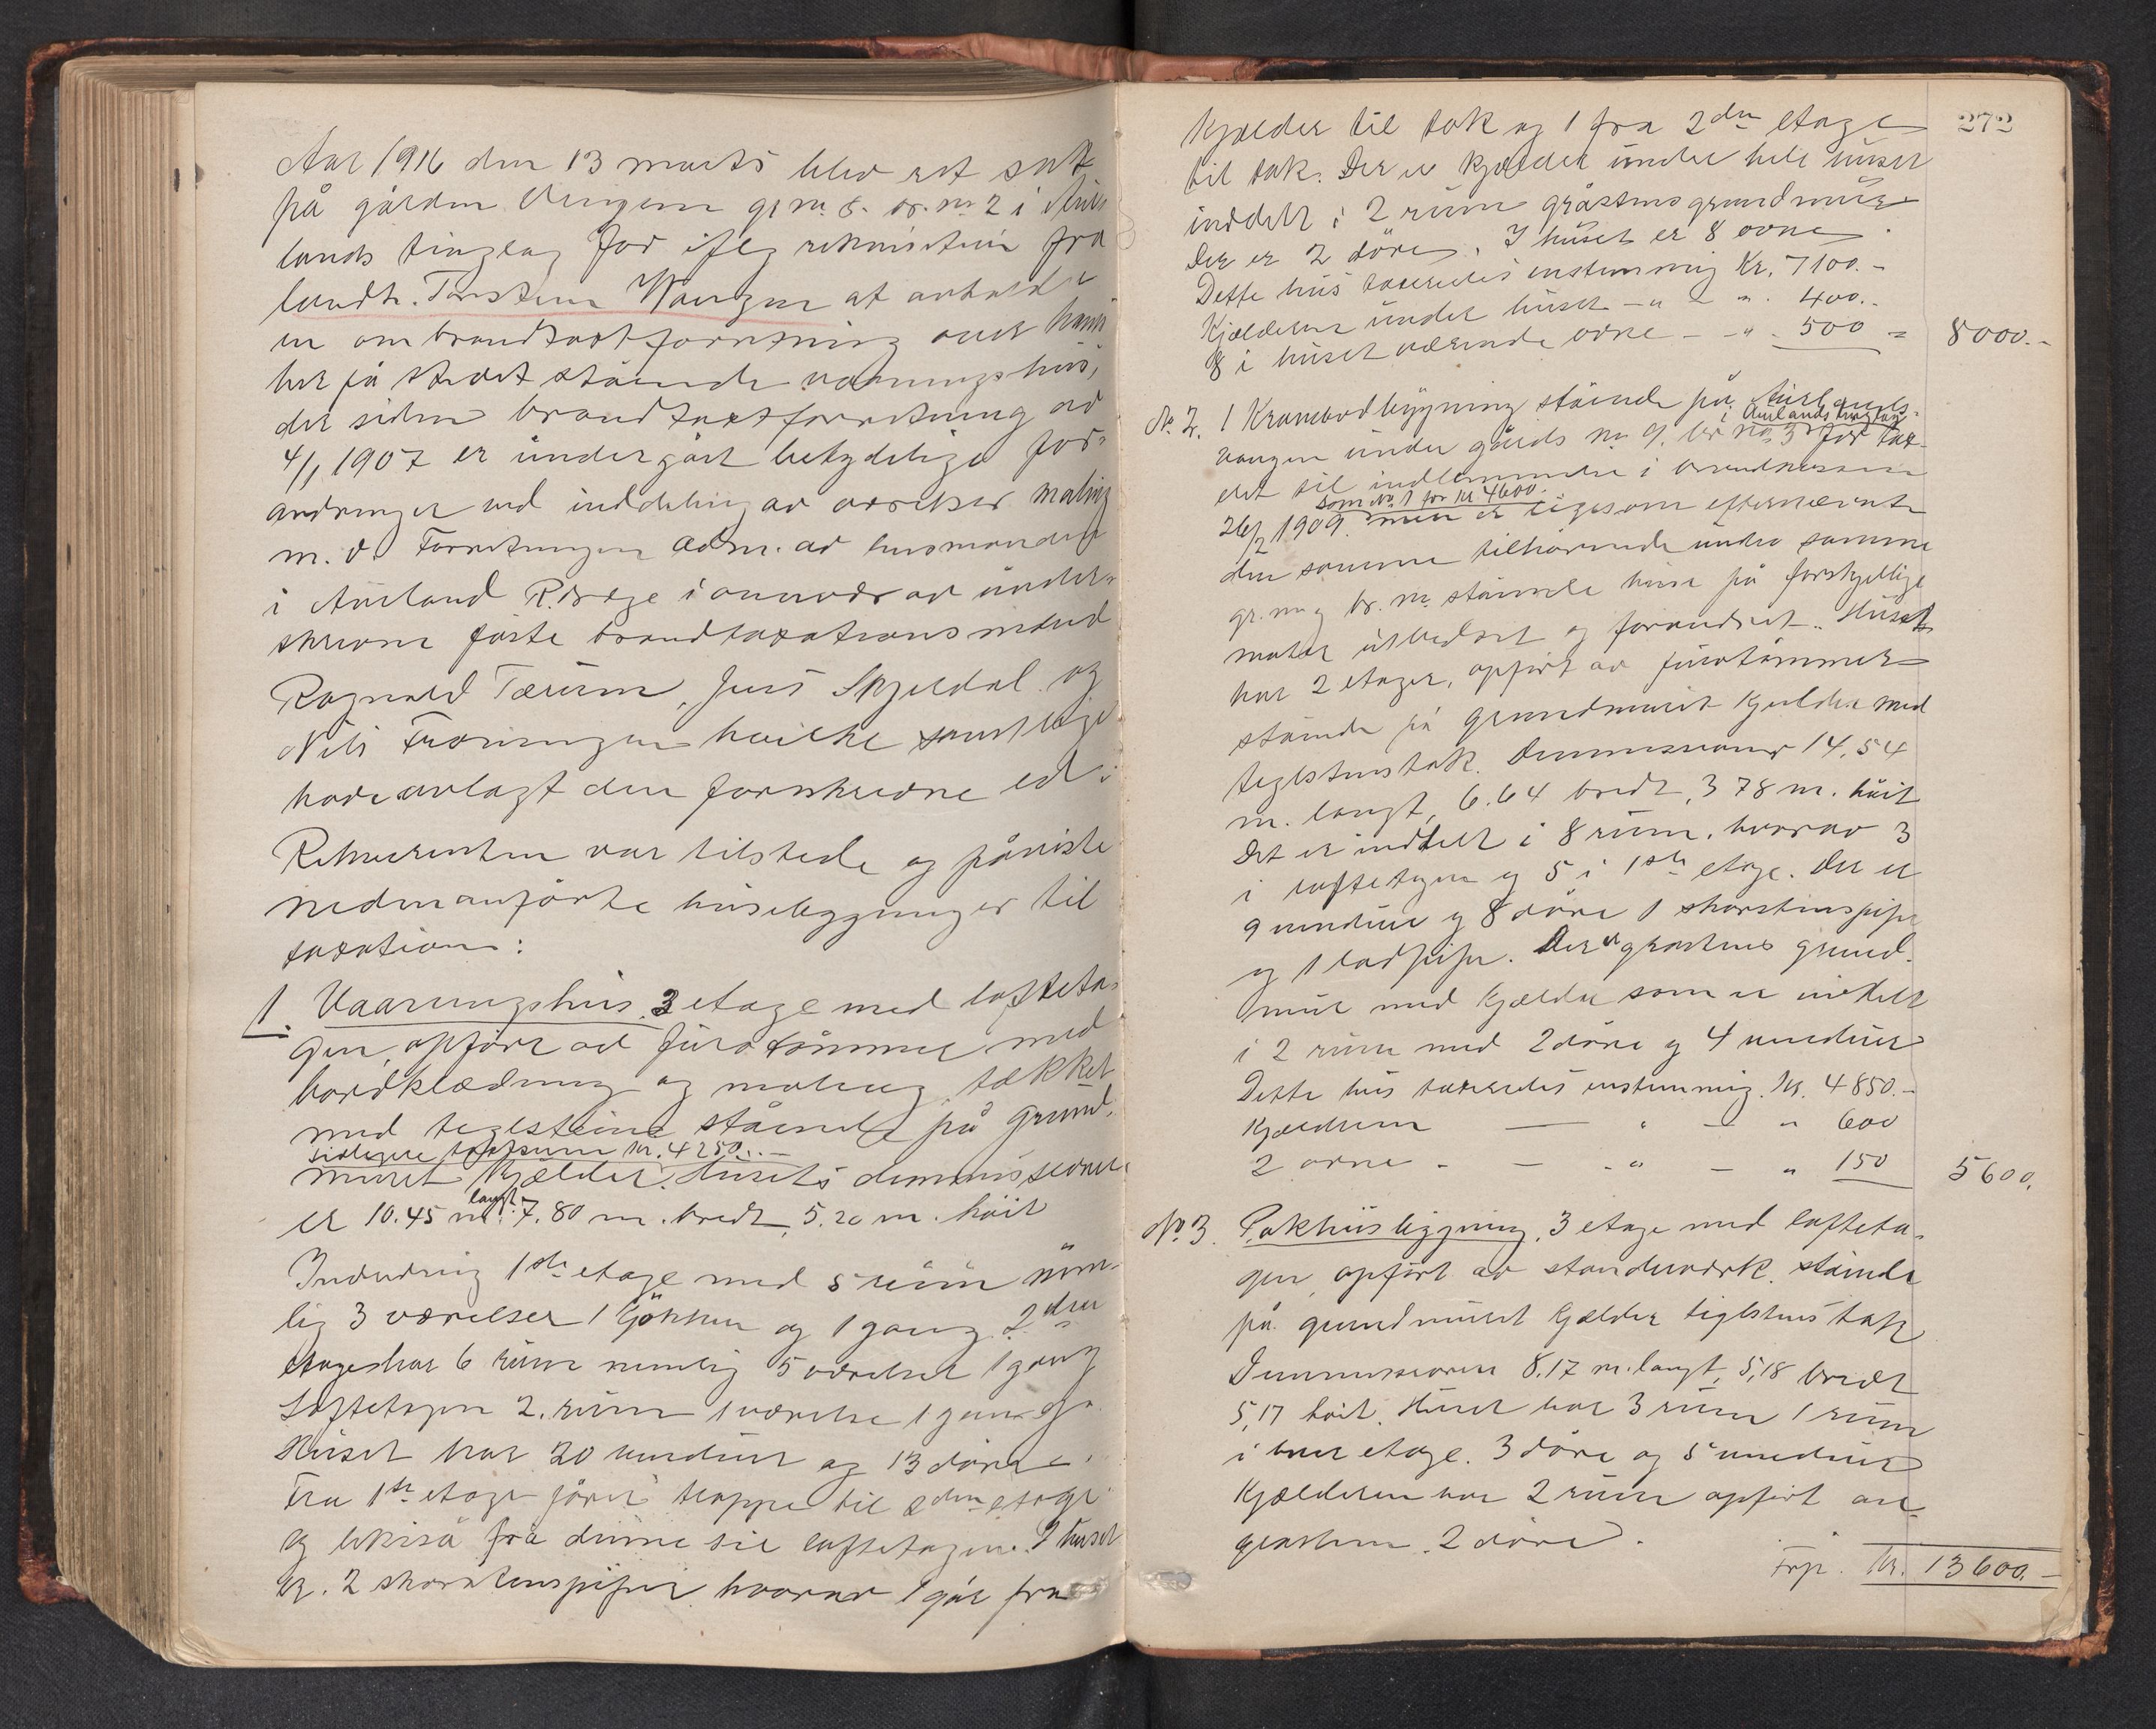 Aar 1916 den 13 marts blev ret sat
på gården Vangen gr. no. 8. br. no 2 i Aur-
lands tinglag for ifly rekvisition fra
landh. Torstein Wangen at avholde
en ombrandtaxtforretning over hans
her på stedet stående vaaningshus,
der siden brandtaxtforretning av
4/1 1907 er undergåt betydelige for-
andringer ved inddeling av værelser maling
m. v. Forretningen adm. av lensmanden
i Aurland R. Brege i overvær av under-
skrevne faste brandtaxationsmænd
Ragnvald Tærum, Jens Skjerdal og
Nils Fretningen hvilke samtlige
have avlagt den forskrevne ed.
Rekvirenten var tilstede og påviste
nedenanførte husebygninger til
taxation:
1. Vaaningshus 2 etage med lofteta-
gen, opført av furutømmer med
bordklædning og maling, tækket
med teglstein stående på grund-
tidligere taxtsum kr. 4250.-
muret kjælder. Husets dimmissioner
er 10.45 m. langt 7.80 m. bredt, 5.20 m. höit
Indredning 1ste etage med 5 rüm näm-
lig 3 værelser 1 Kjökken og 1 gang. 2den
etage har 6 rüm nemlig 5 værelser 1 gang
Loftetagen 2. rüm 1 værelse 1 gang
Huset har 20 vinduer og 13 döre.
Fra 1ste etage förer trappe til 2den etage
og likeså fra denne til loftetagen. I huset
er. 2 skorstenspiper hvorav 1 går fra
272
Kjælder til tak og 1 fra 2den etage
til tak. Der er kjælder ünder hele hüset
inddelt i 2 rüm gråstens grundmür
Der er 2 döre. I hüset er 8 ovne.
Dette hus taxeredes enstemmig Kr. 7100.-
Kjælderen ünder hüset - " - " 400.-
8 i hüset værende ovne - - " 500 = 8000.-
No. 2. 1 Krambodbygning stående på Aurlands-
Aurlands tinglag
vangen under gårds no 9. br. no 3 for tax-
eret til indlemmelse i brandkassen
som No. 1 for kr 4600.
26/2 1909. men er ligesom efternævnte
den samme tilhörende under samme
gr. no og br. no stående huse på forskjellige
måter utbedret og forandret. Huset
har 2 etager, opfört av furutömmer
stående på grundmuret Kjelder med
teglstenstak. Dimmissioner 14.54
m. langt, 6.64 bredt, 3 78 m. höit
Det er inddelt i 8 rüm, hvorav 3
i loftetagen og 5 i 1ste etage. Der er
9 vinduer og 8 döre 1 skorstenspipe
og 1 ladpipe. Der er gråstens grund-
mür med Kjælder som er inddelt
i 2 rüm med 2 döre og 4 vinduer
Dette hus taxeredes enstemmig. Kr. 4850.-
Kjælderen — " — " 600
2 ovne - — - " — " 150 5600.
No 3. Pakhüsbygning, 3 etage med lofteta-
gen, opfört av stenderværk. stående
på grundmüret kjælder teglstens tak
Dimmissioner 8.17 m. langt, 5,18 bredt
5,17 höit. Hüset har 3 rüm 1 rüm
i hver etage. 3 döre og 5 vinduer
Kjælderen har 2 rüm opfört av
gråsten. 2 döre.
Trp. Kr. 13600.-